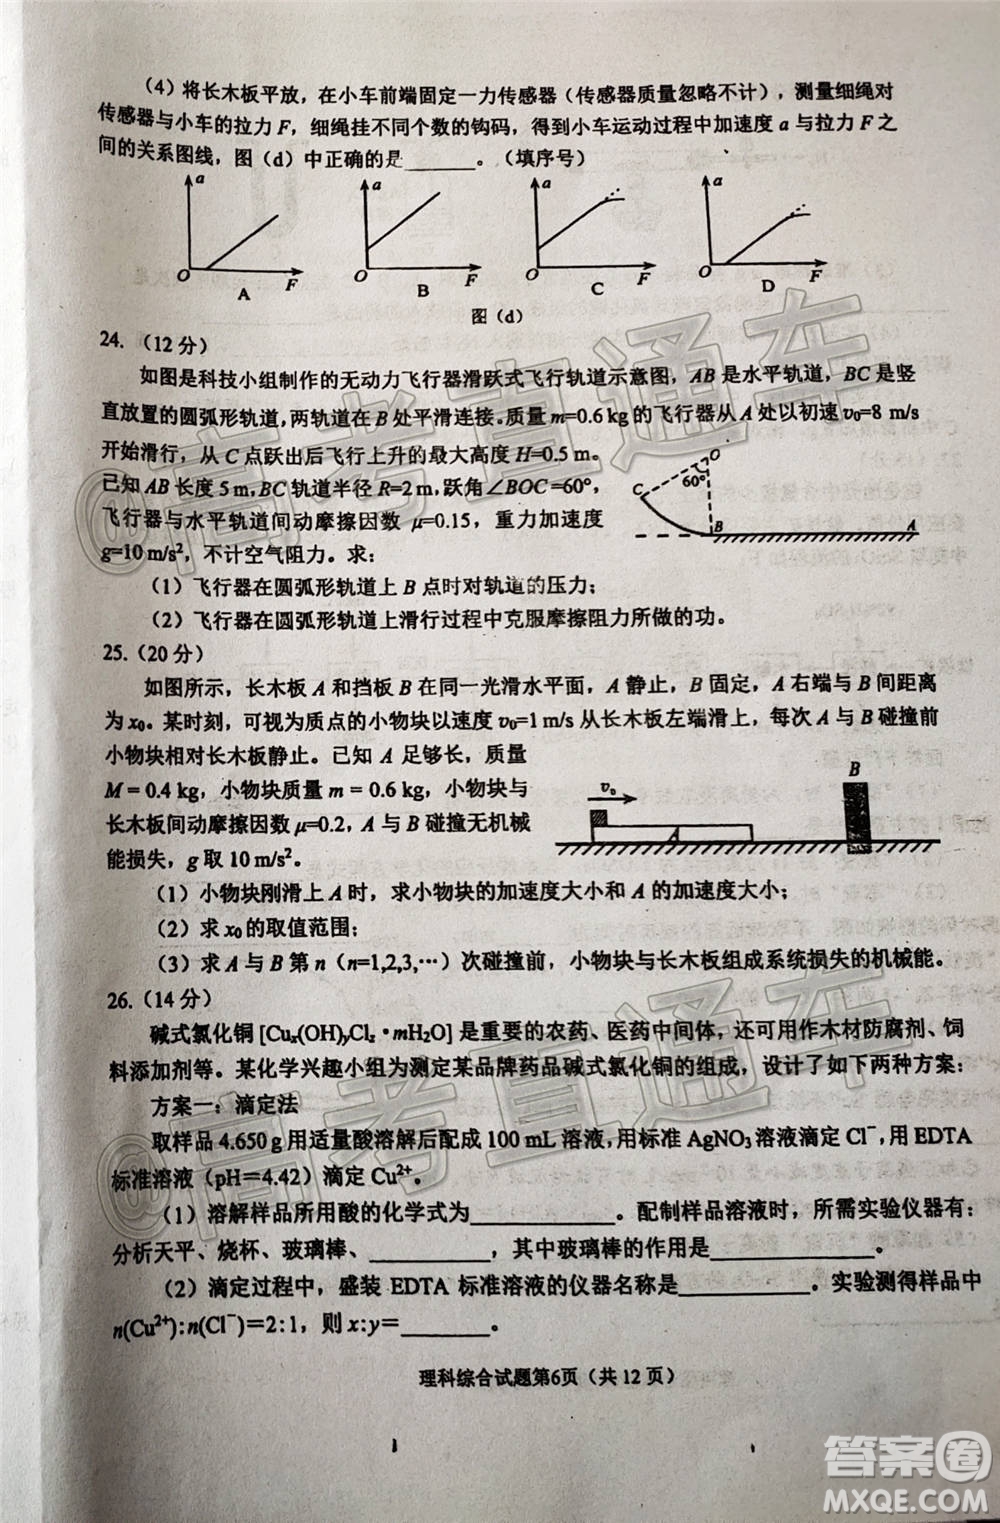 (4)将长木板平放，在小车前端固定一力传感器（传感器质量忽略不计），测量细绳对
传感器与小车的拉力 F，细绳挂不同个数的钩码，得到小车运动过程中加速度 a 与拉力 F 之
间的关系图线，图（d）中正确的是______。（填序号）
a a a a
O F O F O F O F
A B C D
图（d）
24.（12 分）
如图是科技小组制作的无动力飞行器滑跃式飞行轨道示意图，AB 是水平轨道，BC 是竖
直放置的圆弧形轨道，两轨道在 B 处平滑连接。质量 m=0.6 kg 的飞行器从 A 处以初速 v₀=8 m/s
开始滑行，从 C 点跃出后飞行上升的最大高度 H=0.5 m。
已知 AB 长度 5 m，BC 轨道半径 R=2 m，跃角∠BOC=60°，
飞行器与水平轨道间动摩擦因数 μ=0.15，重力加速度
g=10 m/s²，不计空气阻力。求：
O
60°
C
B A
（1）飞行器在圆弧形轨道上 B 点时对轨道的压力；
（2）飞行器在圆弧形轨道上滑行过程中克服摩擦阻力所做的功。
25.（20 分）
如图所示，长木板 A 和挡板 B 在同一光滑水平面，A 静止，B 固定，A 右端与 B 间距离
为 x₀。某时刻，可视为质点的小物块以速度 v₀=1 m/s 从长木板左端滑上，每次 A 与 B 碰撞前
小物块相对长木板静止。已知 A 足够长，质量
M = 0.4 kg，小物块质量 m = 0.6 kg，小物块与
长木板间动摩擦因数 μ=0.2，A 与 B 碰撞无机械
能损失，g 取 10 m/s²。
v₀
A
B
（1）小物块刚滑上 A 时，求小物块的加速度大小和 A 的加速度大小；
（2）求 x₀ 的取值范围；
（3）求 A 与 B 第 n（n=1,2,3,…）次碰撞前，小物块与长木板组成系统损失的机械能。
26.（14 分）
碱式氯化铜 [Cuₓ(OH)ᵧCl_z·mH₂O] 是重要的农药、医药中间体，还可用作木材防腐剂、饲
料添加剂等。某化学兴趣小组为测定某品牌药品碱式氯化铜的组成，设计了如下两种方案：
方案一：滴定法
取样品 4.650 g 用适量酸溶解后配成 100 mL 溶液，用标准 AgNO₃ 溶液滴定 Cl⁻，用 EDTA
标准溶液（pH＝4.42）滴定 Cu²⁺。
（1）溶解样品所用酸的化学式为____________。配制样品溶液时，所需实验仪器有：
分析天平、烧杯、玻璃棒、__________，其中玻璃棒的作用是______________。
（2）滴定过程中，盛装 EDTA 标准溶液的仪器名称是___________。实验测得样品中
n(Cu²⁺):n(Cl⁻)＝2:1，则 x:y＝________。
理科综合试题第6页（共12页）
@高考直通车
@高考直通车
答案圈
MXQE.COM